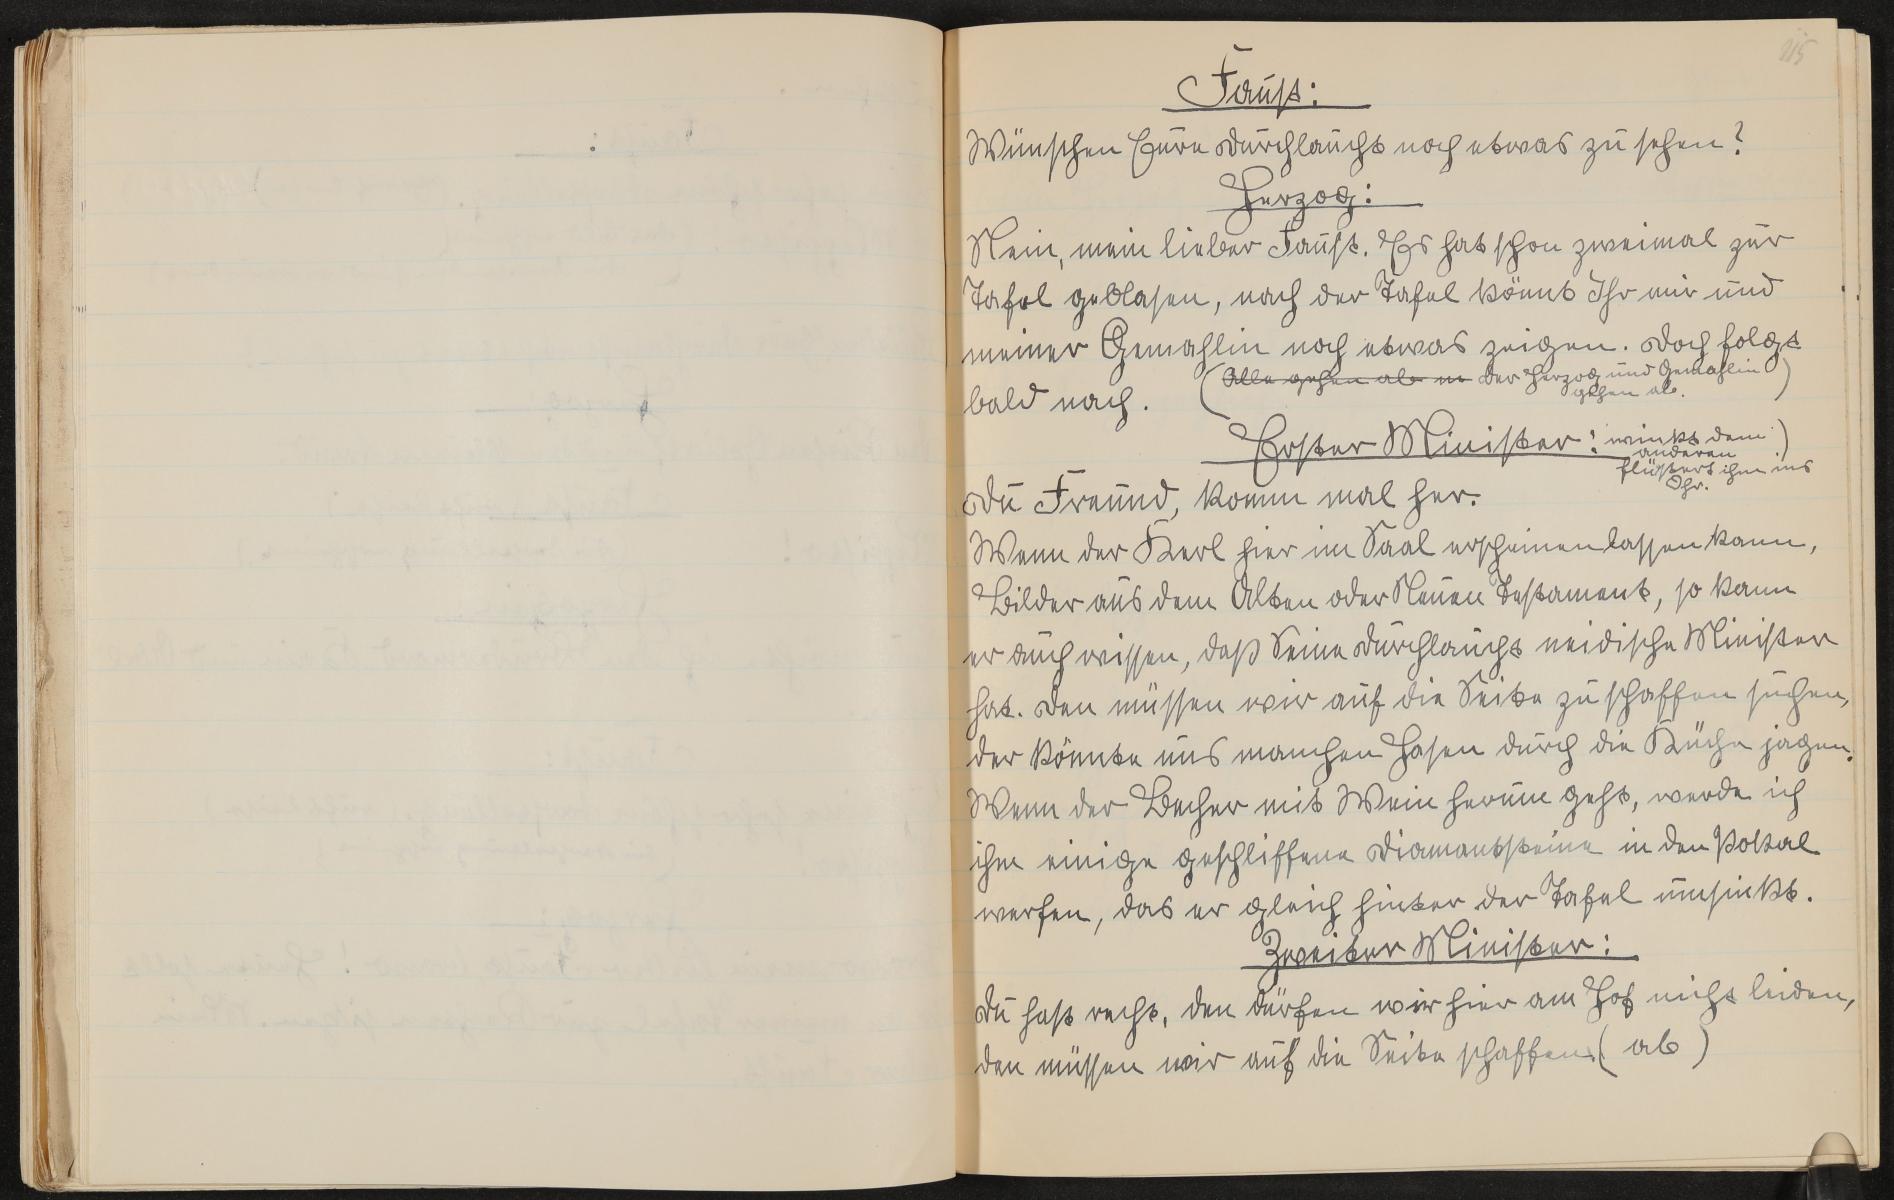 215
Faust:
Wünschen Eure Durchlaucht noch etwas zu sehen?
Herzog:
Nein, mein lieber Faust. Es hat schon zweimal zur
Tafel geblasen, nach der Tafel könnt Ihr mir und
meiner Gemahlin noch etwas zeigen. Doch folgt
bald nach. (Alle gehen ab der Herzog und Gemahlin
gehen ab.)
Erster Minister: winkt dem)
anderen
flüstert ihm ins
Ohr.
Du Freund, komm mal her.
Wenn der Kerl hier im Saal erscheinen lassen kann,
Bilder aus dem Alten oder Neuen Testament, so kann
er auch wissen, daß Seine Durchlaucht neidische Minister
hat. Den müssen wir auf die Seite zu schaffen suchen,
der könnte uns manchen Hasen durch die Küche jagen.
Wenn der Becher mit Wein herum geht, werde ich
ihm einige geschliffene Diamantsteine in den Pokal
werfen, das er gleich hinter der Tafel umsinkt.
Zweiter Minister:
Du hast recht, den dürfen wir hier am Hof nicht leiden,
den müssen wir auf die Seite schaffen. (ab)